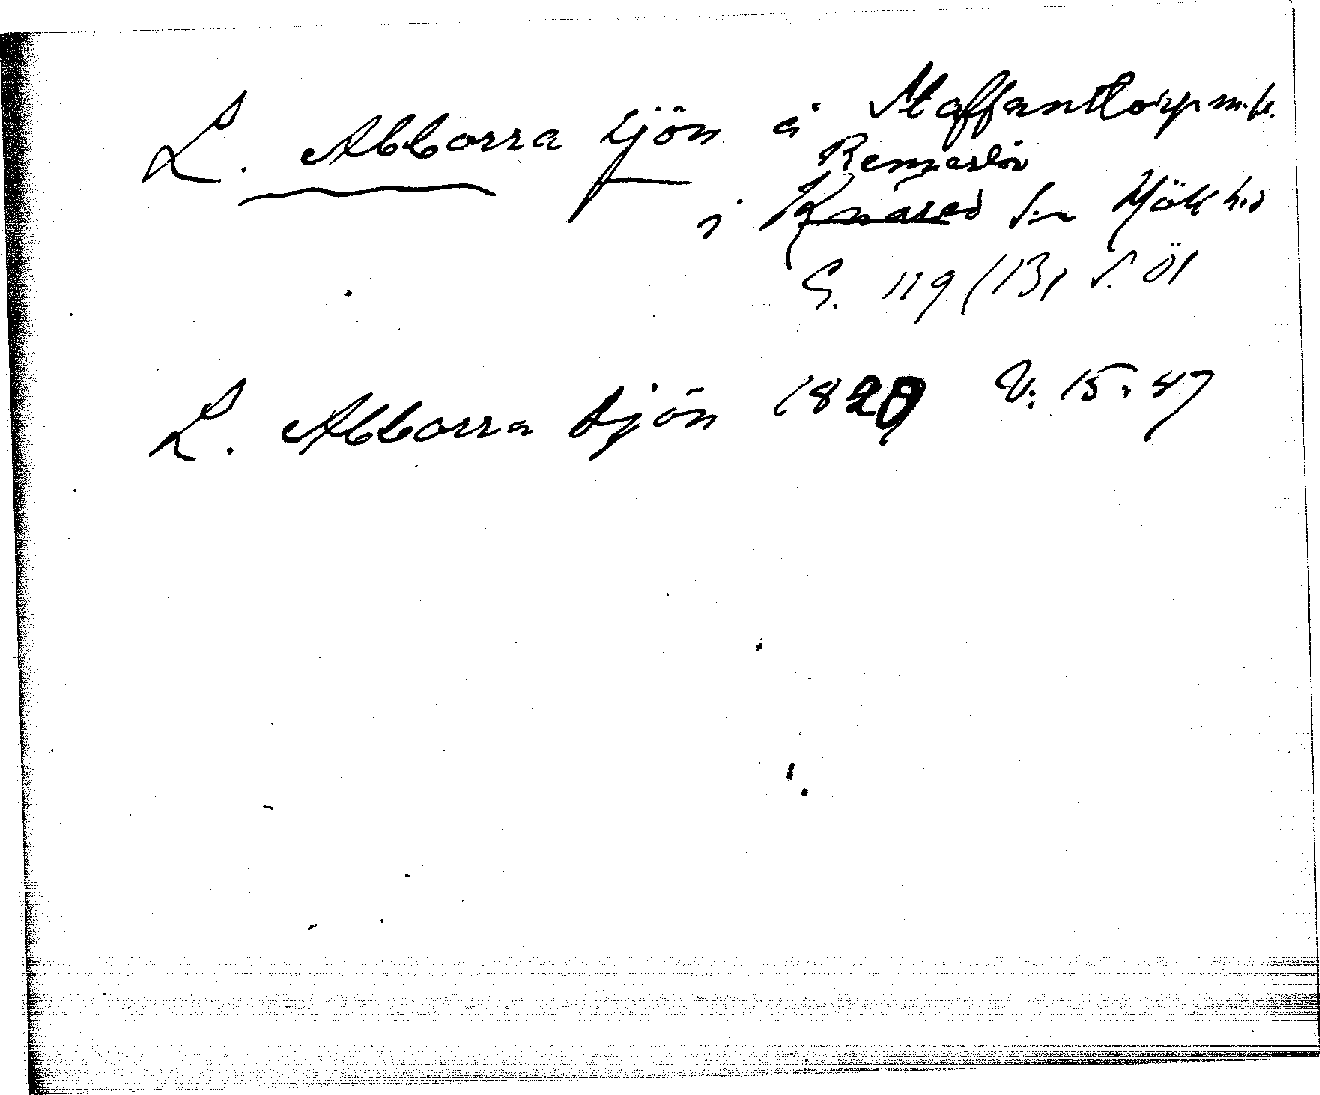 L. Abborra sjön å Staffanstorps m.fl.
Renneslöv
i Knäred s:n Höks hd
G. 119 (13) S. Öl
L. Abborra sjön 1829 V: 15: 47